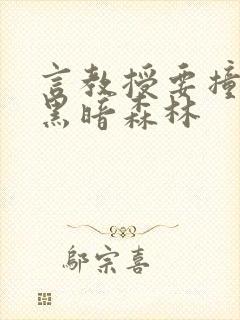 言教授要撞
黑暗森林
邬宗喜